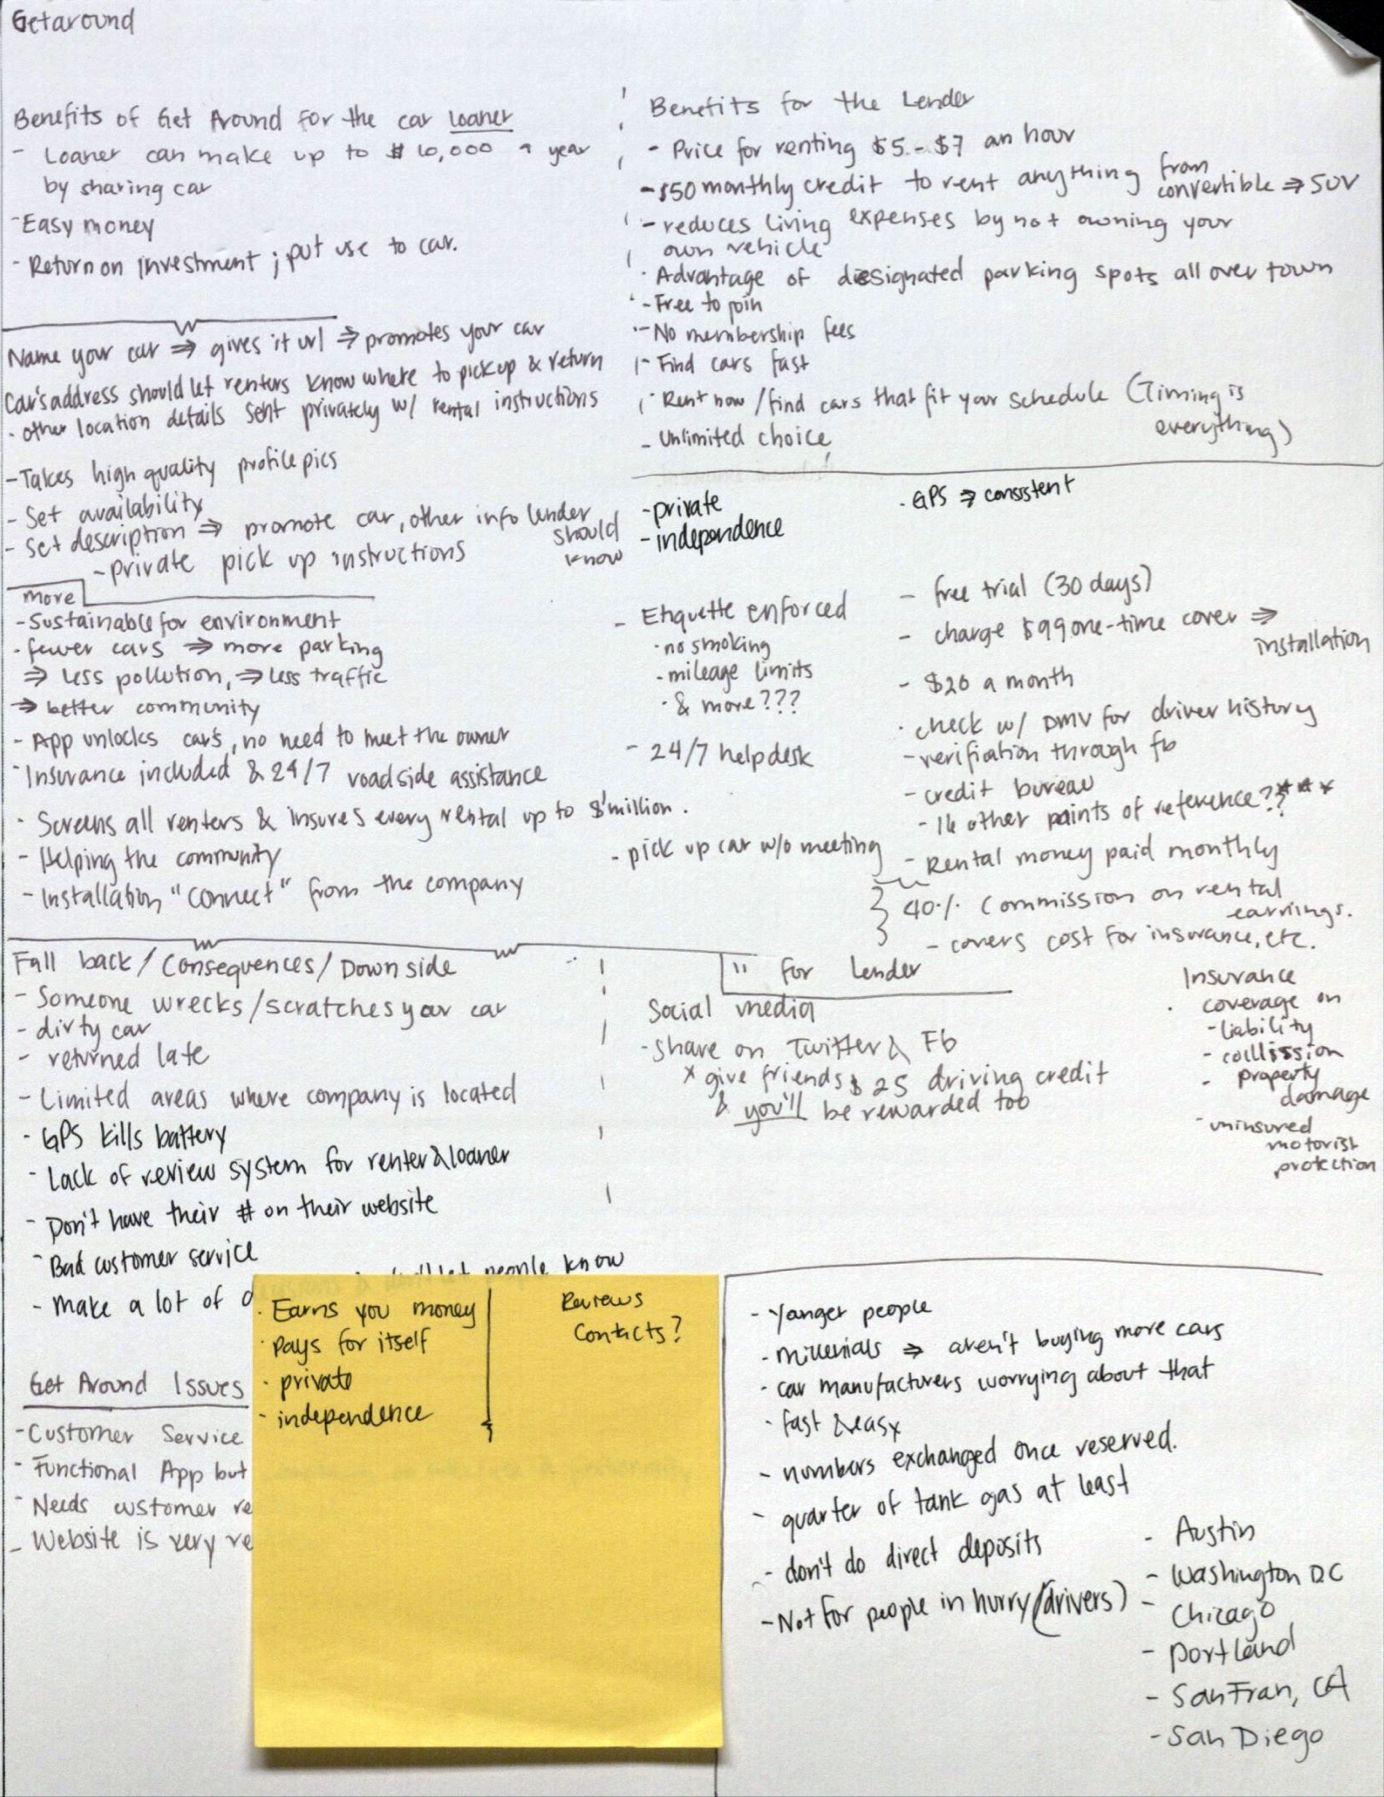 Getaround
Benefits of Get Around for the car loaner
- Loaner can make up to $10,000 a year
by sharing car
- Easy money
- Return on investment; put use to car.
Name your car ⇒ gives it url ⇒ promotes your car
Car's address should let renters know where to pick up & return
· other location details sent privately w/ rental instructions
- Takes high quality profile pics
- Set availability
- Set description ⇒ promote car, other info lender
should
know
- private pick up instructions
more
- Sustainable for environment
· fewer cars ⇒ more parking
⇒ less pollution, ⇒ less traffic
⇒ better community
- App unlocks cars, no need to meet the owner
- Insurance included & 24/7 roadside assistance
· Screens all renters & insures every rental up to $1 million.
- Helping the community
- Installation "Connect" from the company
Fall back/Consequences/Downside
- Someone wrecks/scratches your car
- dirty car
- returned late
- Limited areas where company is located
- GPS kills battery
- Lack of review system for renter & loaner
- Don't have their # on their website
- Bad customer service
- Make a lot of
people know
Get Around Issues
- Customer Service
- Functional App but
- Needs customer re
- Website is very re
Benefits for the Lender
- Price for renting $5 - $7 an hour
- $50 monthly credit to rent anything from
convertible ⇒ SUV
- reduces living expenses by not owning your
own vehicle
· Advantage of designated parking spots all over town
- Free to join
- No membership fees
- Find cars fast
· Rent now/find cars that fit your schedule (Timing is
everything)
- Unlimited choice
- private
- independence
· GPS ⇒ consistent
- Etiquette enforced
· no smoking
- mileage limits
· & more???
- 24/7 helpdesk
- pick up car w/o meeting
- free trial (30 days)
- charge $99 one-time cover ⇒
installation
- $20 a month
· check w/ DMV for driver history
- verifiation through fb
- credit bureau
- 16 other points of reference??***
- Rental money paid monthly
40% Commission on rental
earnings.
- covers cost for insurance, etc.
" for lender
Social media
- share on Twitter & Fb
x give friends $25 driving credit
& you'll be rewarded too
Insurance
· coverage on
- liability
- collission
- property
damage
- uninsured
motorist
protection
· Earns you money
· pays for itself
· private
- independence
Reviews
Contacts?
- Yanger people
- millenials ⇒ aren't buying more cars
· car manufacturers worrying about that
· fast & easy
- numbers exchanged once reserved.
- quarter of tank gas at least
- don't do direct deposits
- Not for people in hurry (drivers)
- Austin
- Washington DC
- Chicago
- Portland
- San Fran, CA
- San Diego